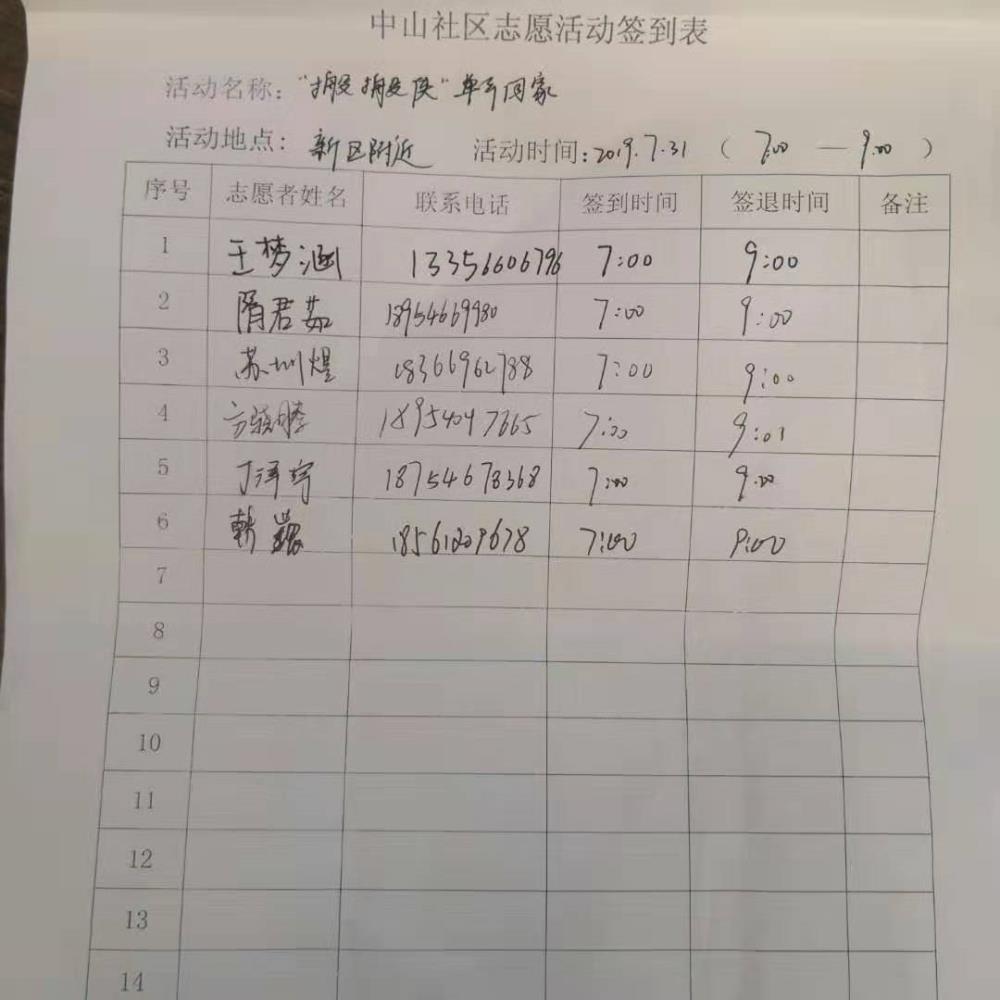 中山社区志愿活动签到表
活动名称：“搬搬侠”单车回家
活动地点：新区附近 活动时间：2019.7.31 （ 7:00 — 9:00 ）
序号 志愿者姓名 联系电话 签到时间 签退时间 备注
1 王梦涵 13356606796 7:00 9:00
2 隋君茹 18954669980 7:00 9:00
3 苏圳煜 18366962788 7:00 9:00
4 18954047665 7:00 9:01
5 丁泽宇 18754673368 7:00 9:00
6 18561209678 7:00 9:00
7
8
9
10
11
12
13
14